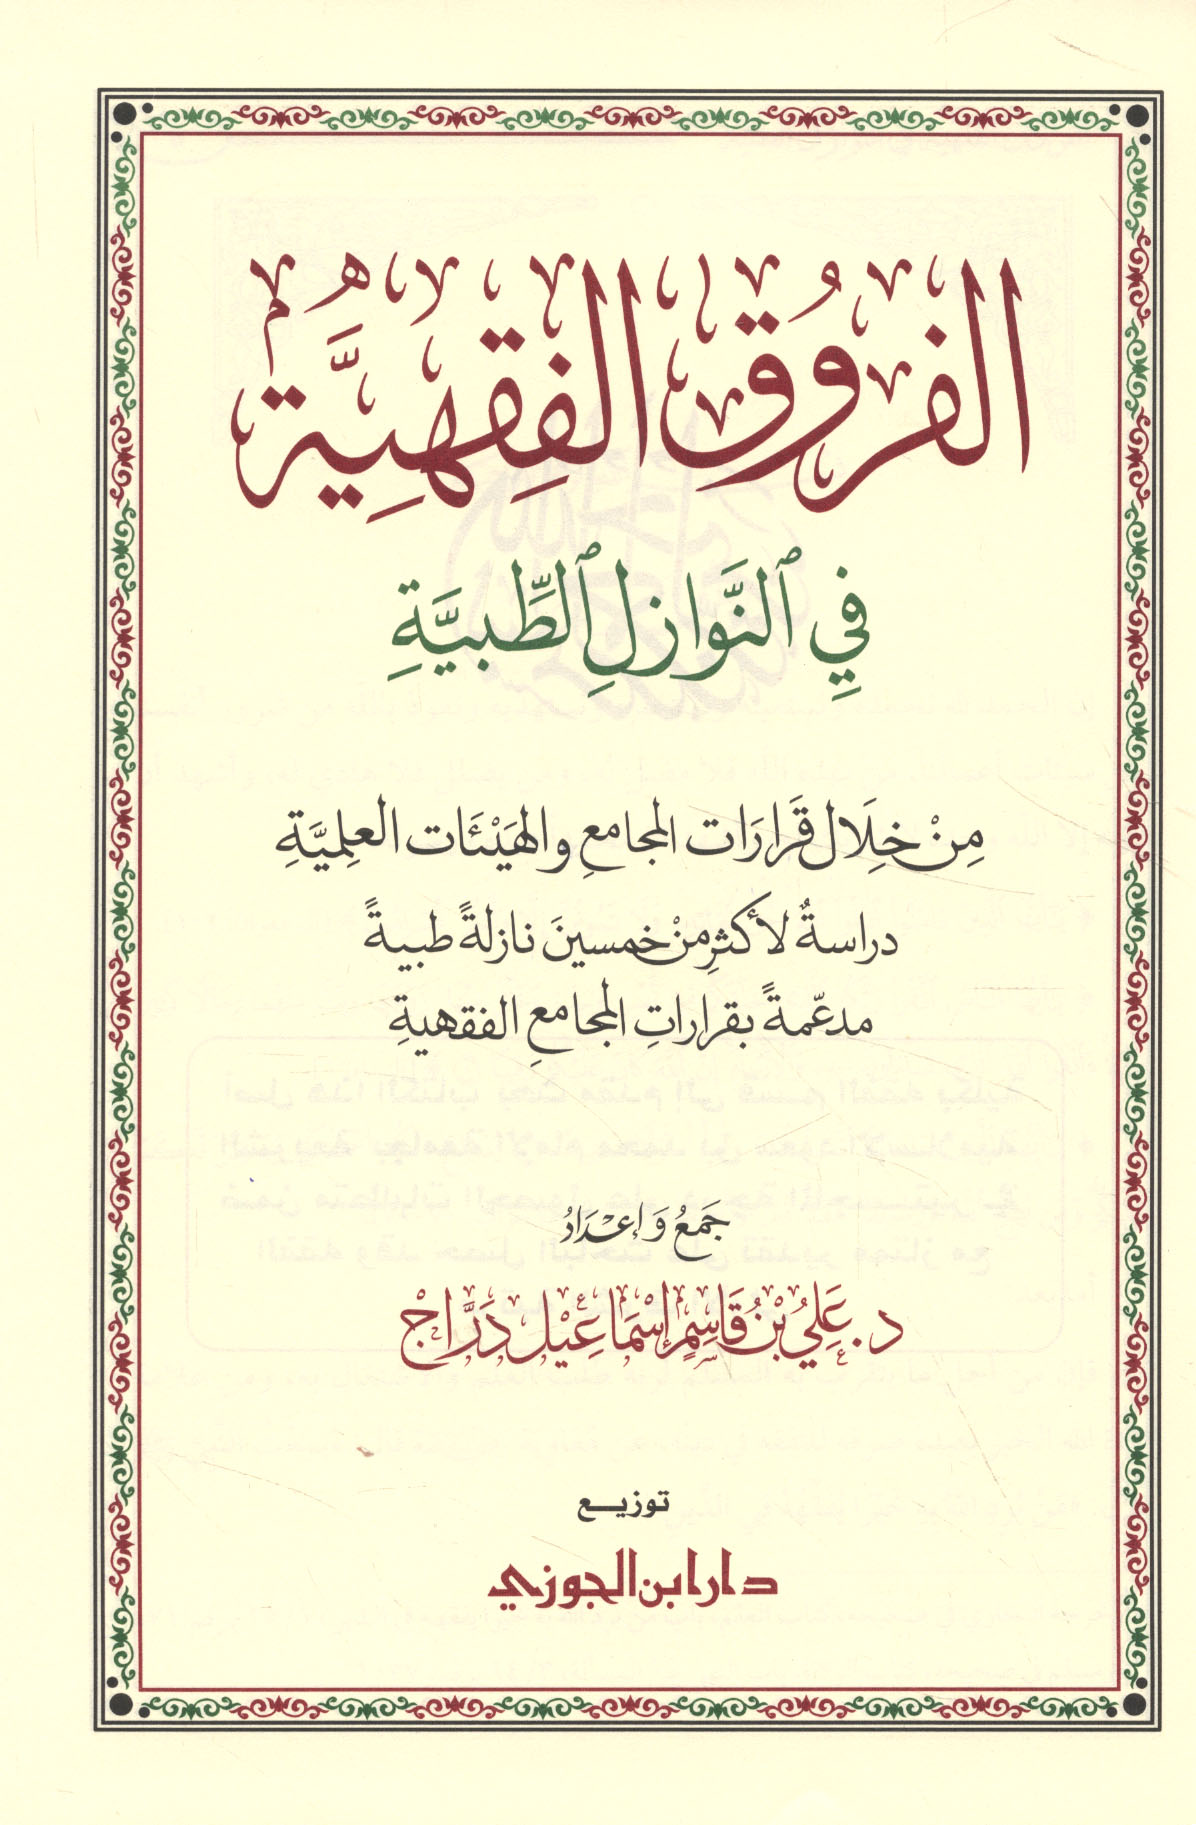 الفُرُوقُ الفِقْهِيَّةُ
فِي ٱلنَّوَازِلِ ٱلطِّبِيَّةِ
مِنْ خِلَالِ قَرَارَات المجامعِ والهَيْئَات العِلميَّةِ
دراسةٌ لأكثرِ مِنْ خمسينَ نازلةً طبيةً
مدعّمةً بقراراتِ المجامعِ الفقهيةِ
جَمعُ وَإعْدَادُ
د. عَلِيُ بْنُ قَاسِمٍ إسْمَاعِيْل دَرَّاجْ
توزيع
دار ابن الجوزي